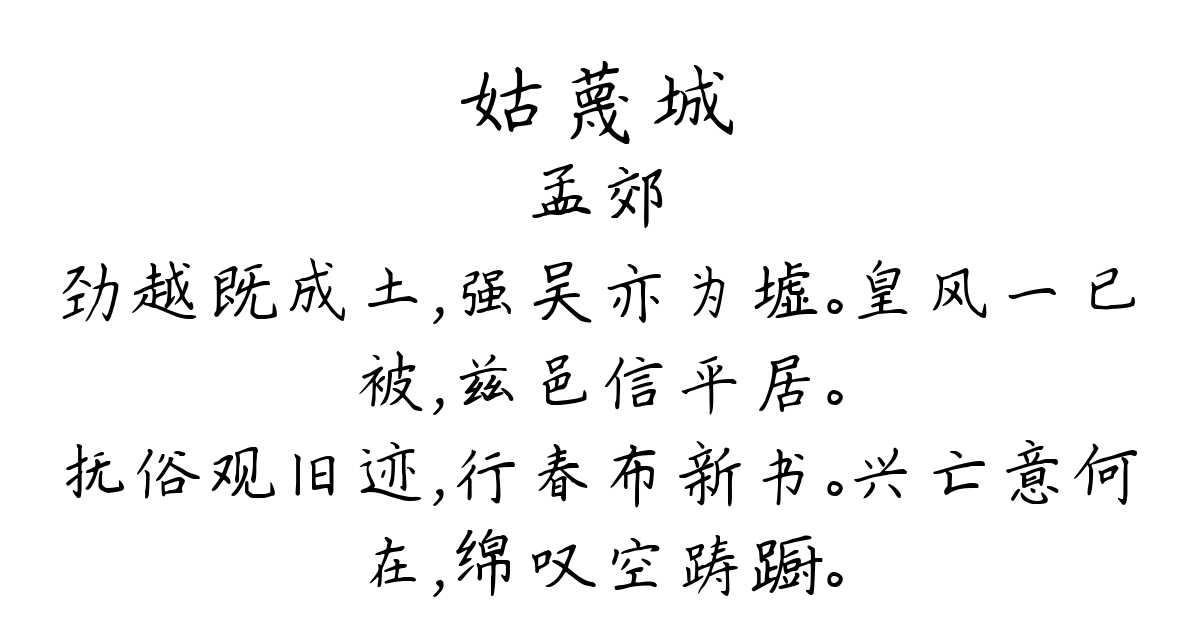 姑蔑城
孟郊
劲越既成土,强吴亦为墟。皇风一已
被,兹邑信平居。
抚俗观旧迹,行春布新书。兴亡意何
在,绵叹空踌蹰。